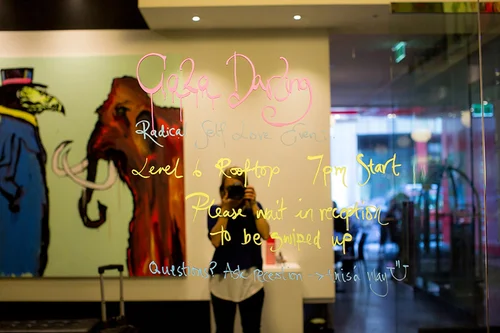 Gala Darling
Radical Self Love Event
Level 6 Rooftop 7pm Start
Please wait in reception
to be swiped up
Questions? Ask reception this a way